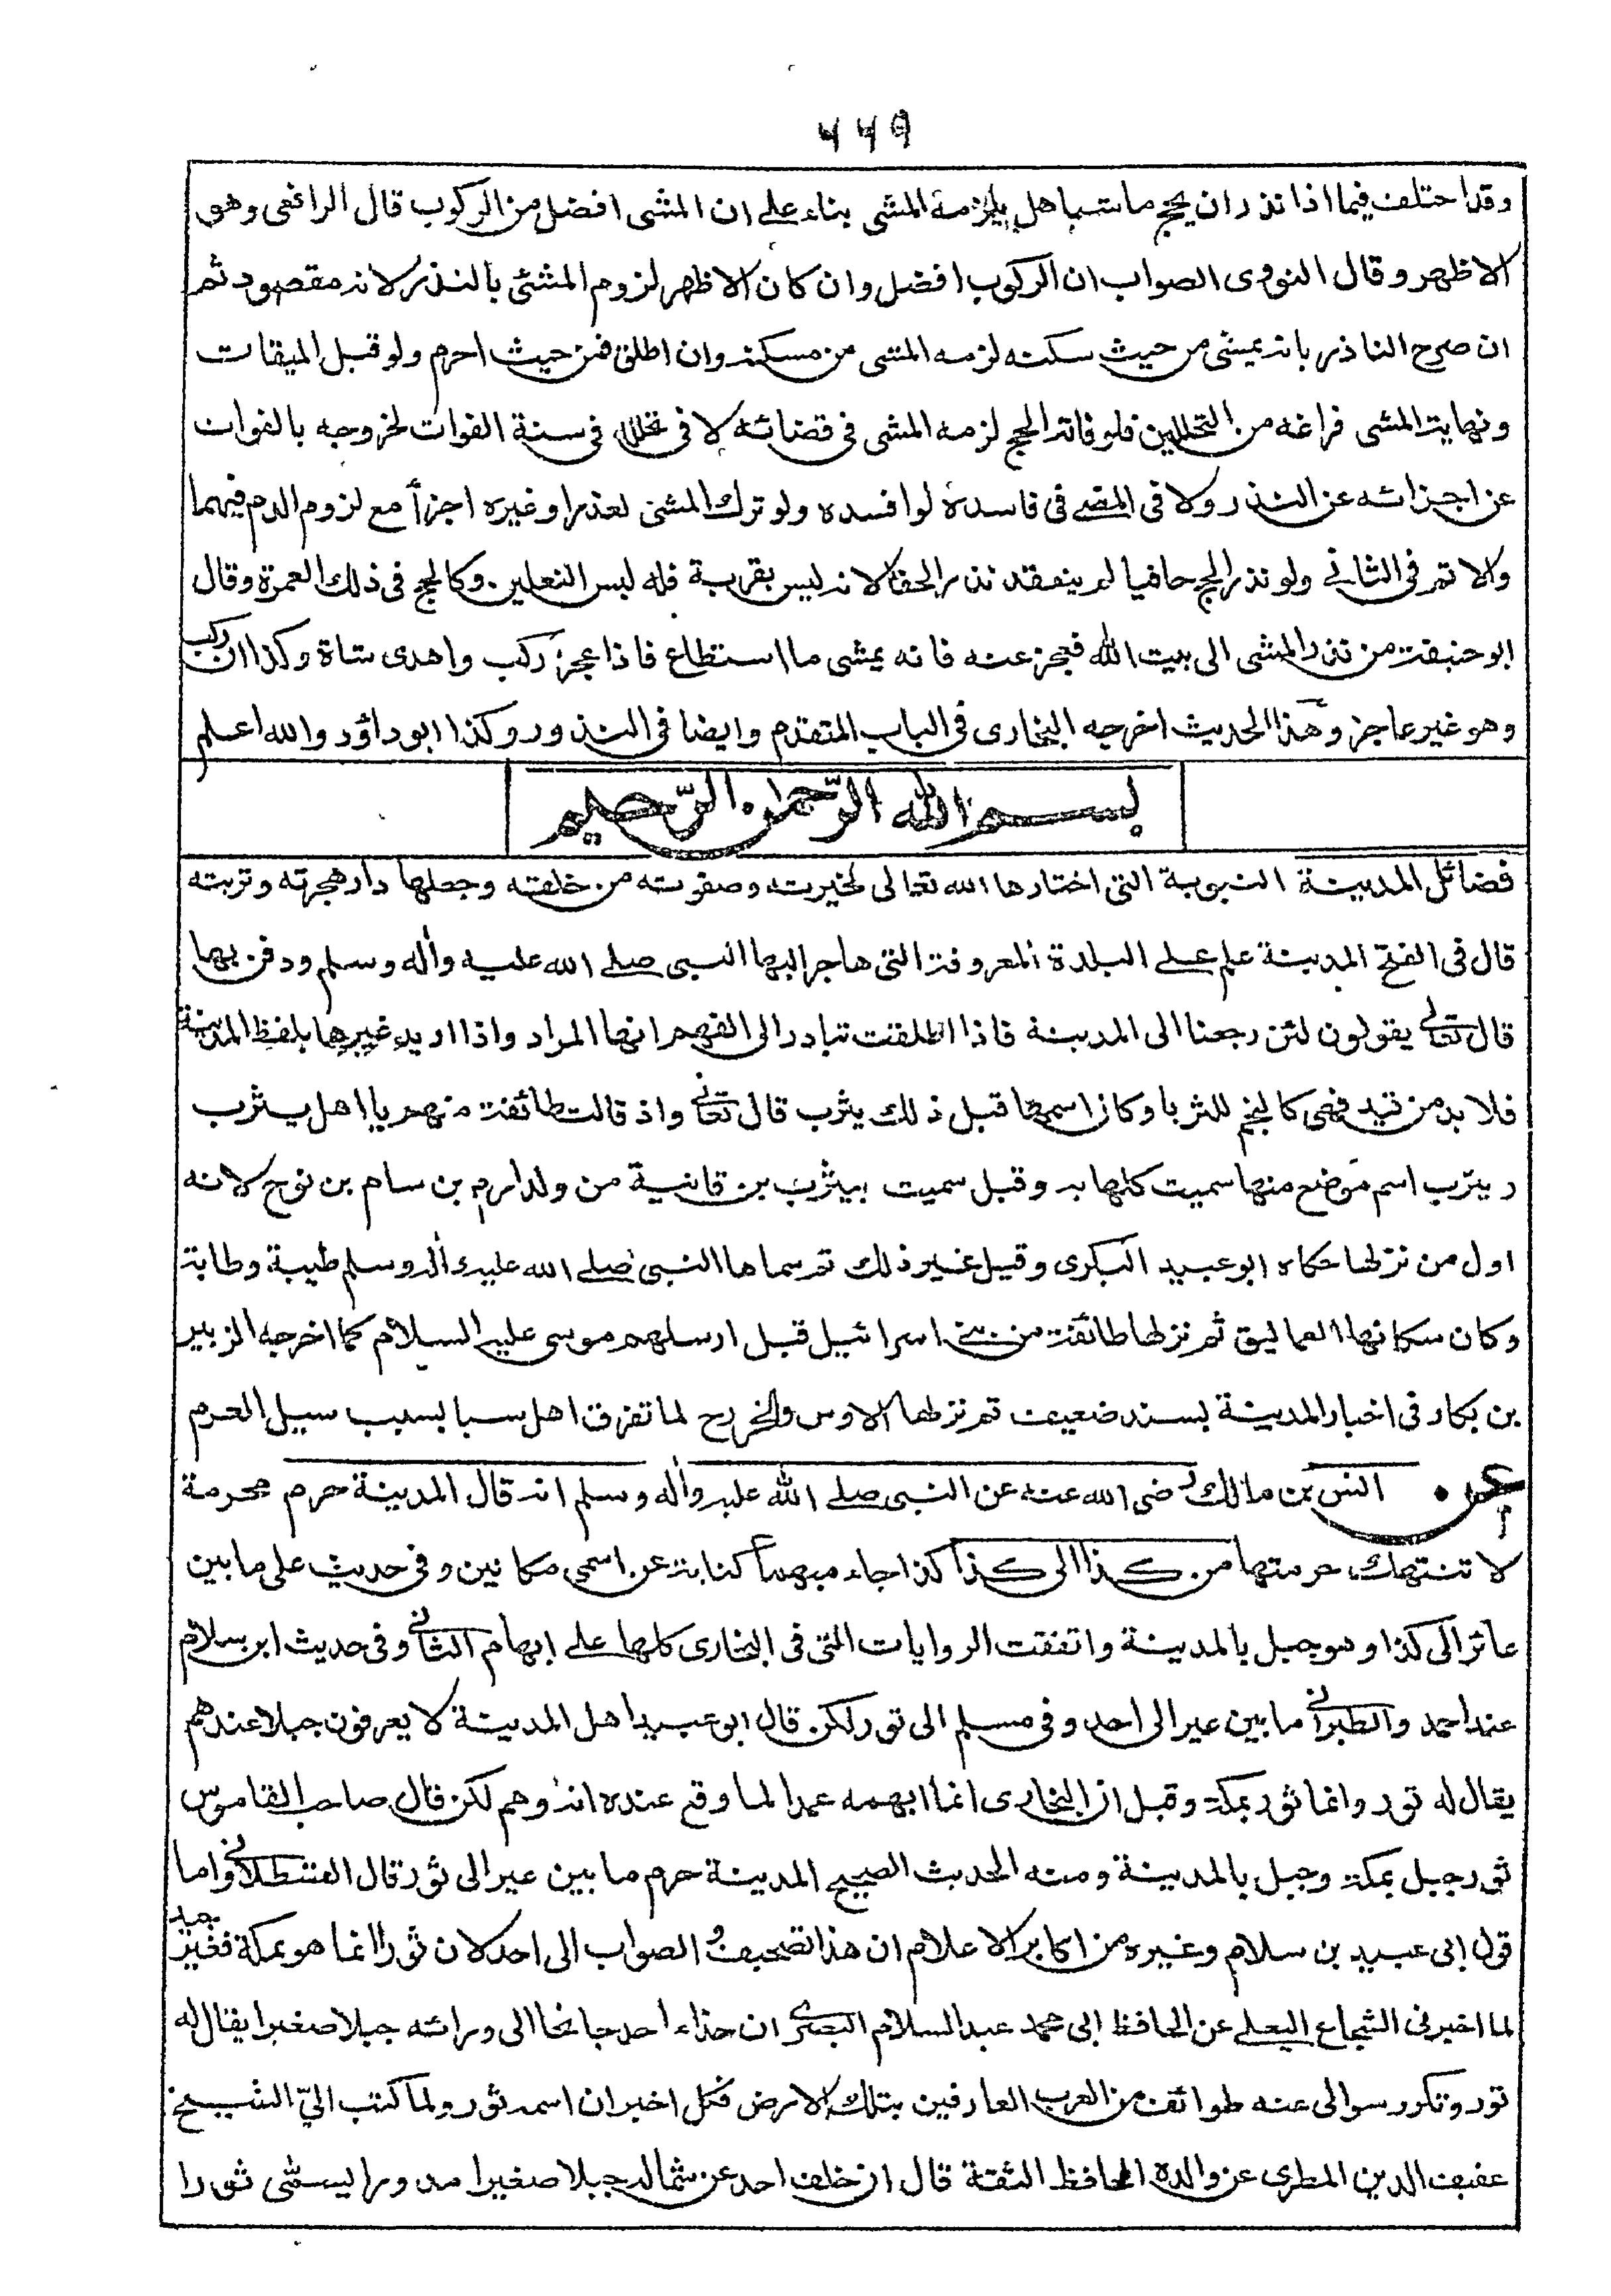 ٤٤٩
وقد اختلف فيما اذا نذر ان يحج ماشيا هل يلزمه المشى بناء على ان المشى افضل من الركوب قال الرافعى وهو
الاظهر وقال النووى الصواب ان الركوب افضل وان كان الاظهر لزوم المشى بالنذر لانه مقصود ثم
ان صرح الناذر بانه يمشى من حيث سكنه لزمه المشى من مسكنه وان اطلق فمن حيث احرم ولو قبل الميقات
ونهاية المشى فراغه من التحللين فلو فاته الحج لزمه المشى فى قضائه لا فى تحلله فى سنة الفوات لخروجه بالفوات
عن اجزائه عن النذر ولا فى المضى فى فاسده لو افسده ولو ترك المشى لعذر او غيره اجزأ مع لزوم الدم فيهما
والاثم فى الثانى ولو نذر الحج حافيا لم ينعقد نذر الحفا لانه ليس بقربة فله لبس النعلين. وكالحج فى ذلك العمرة وقال
ابو حنيفة من نذر المشى الى بيت الله فعجز عنه فانه يمشى ما استطاع فاذا عجز ركب واهدى شاة وكذا ان ركب
وهو غير عاجز وهذا الحديث اخرجه البخارى فى الباب المتقدم وايضا فى النذور وكذا ابو داؤد والله اعلم
بسم الله الرّحمن الرّحيم
فضائل المدينة النبوية التى اختارها الله تعالى لخيرته وصفوته من خلقته وجعلها دار هجرته وتربته
قال فى الفتح المدينة علم على البلدة المعروفة التى هاجر اليها النبى صلى الله عليه وأله وسلم ودفن بها
قال تعالى يقولون لئن رجعنا الى المدينة فاذا اطلقت تبادر الى الفهم انها المراد واذا اريد غيرها بلفظ المدينة
فلا بد من قيد فهى كالنجم للثريا وكان اسمها قبل ذلك يثرب قال تعالى واذ قالت طائفة منهم يا اهل يثرب
ويثرب اسم موضع منها سميت كلها به وقيل سميت بيثرب بن قانية من ولد ارم بن سام بن نوح لانه
اول من نزلها حكاه ابو عبيد البكرى وقيل غير ذلك ثم سماها النبى صلى الله عليه وأله وسلم طيبة وطابة
وكان سكانها العماليق ثم نزلها طائفة من بنى اسرائيل قبل ارسلهم موسى عليه السلام كما اخرجه الزبير
بن بكار فى اخبار المدينة بسند ضعيف ثم نزلها الاوس والخزرج لما تفرق اهل سبا بسبب سيل العرم
عن • انس بن مالك رضى الله عنه عن النبى صلى الله عليه وأله وسلم انه قال المدينة حرم محرمة
لا تنتهك حرمتها من كذا الى كذا كذا جاء مبهما كناية عن اسمى مكانين وفى حديث على ما بين
عائر الى كذا وهو جبل بالمدينة واتفقت الروايات التى فى البخارى كلها على ابهام الثانى وفى حديث ابن سلام
عند احمد والطبرانى ما بين عير الى احد وفى مسلم الى ثور لكن قال ابو عبيد اهل المدينة لا يعرفون جبلا عندهم
يقال له ثور وانما ثور بمكة وقيل ان البخارى انما ابهمه عمدا لما وقع عنده انه وهم لكن قال صاحب القاموس
ثور جبل بمكة وجبل بالمدينة ومنه الحديث الصحيح المدينة حرم ما بين عير الى ثور قال القسطلانى واما
قول ابى عبيد بن سلام وغيره من اكابر الاعلام ان هذا تصحيف و الصواب الى احد لان ثورا انما هو بمكة فغير جيد
لما اخبرنى الشجاع البعلى عن الحافظ ابى محمد عبد السلام البصرى ان حذاء احد جانحا الى ورائه جبلا صغيرا يقال له
ثور وتكرر سوالى عنه طوائف من العرب العارفين بتلك الارض فكل اخبر ان اسمه ثور ولما كتب اليّ الشيخ
عفيف الدين المطرى عن والده الحافظ الثقة قال ان خلف احد عن شماله جبلا صغيرا مدورا يسمّى ثورا